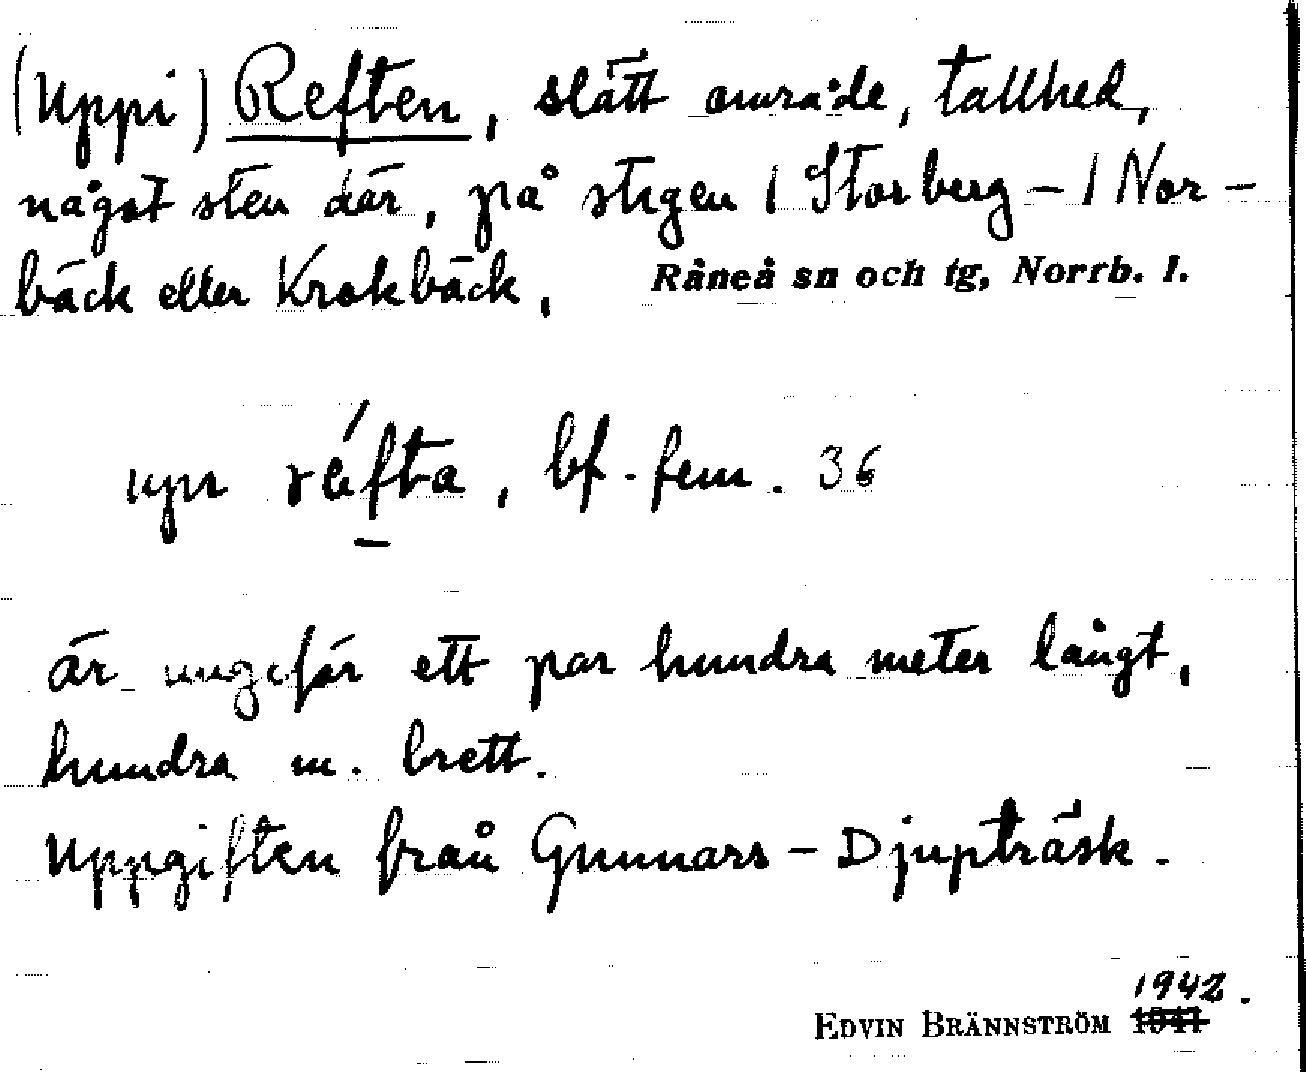 (Uppi) Reften, slätt område, tallhed,
något sten där, på stigen 1 Storberg – 1 Nor-
bäck eller Krokbäck,
Råneå sn och tg, Norrb. l.
réfta, bf. fem. 36
är ungefär ett par hundra meter långt,
hundra m. brett.
Uppgiften från Gunnars-Djupträsk.
1942.
EDVIN BRÄNNSTRÖM 1941